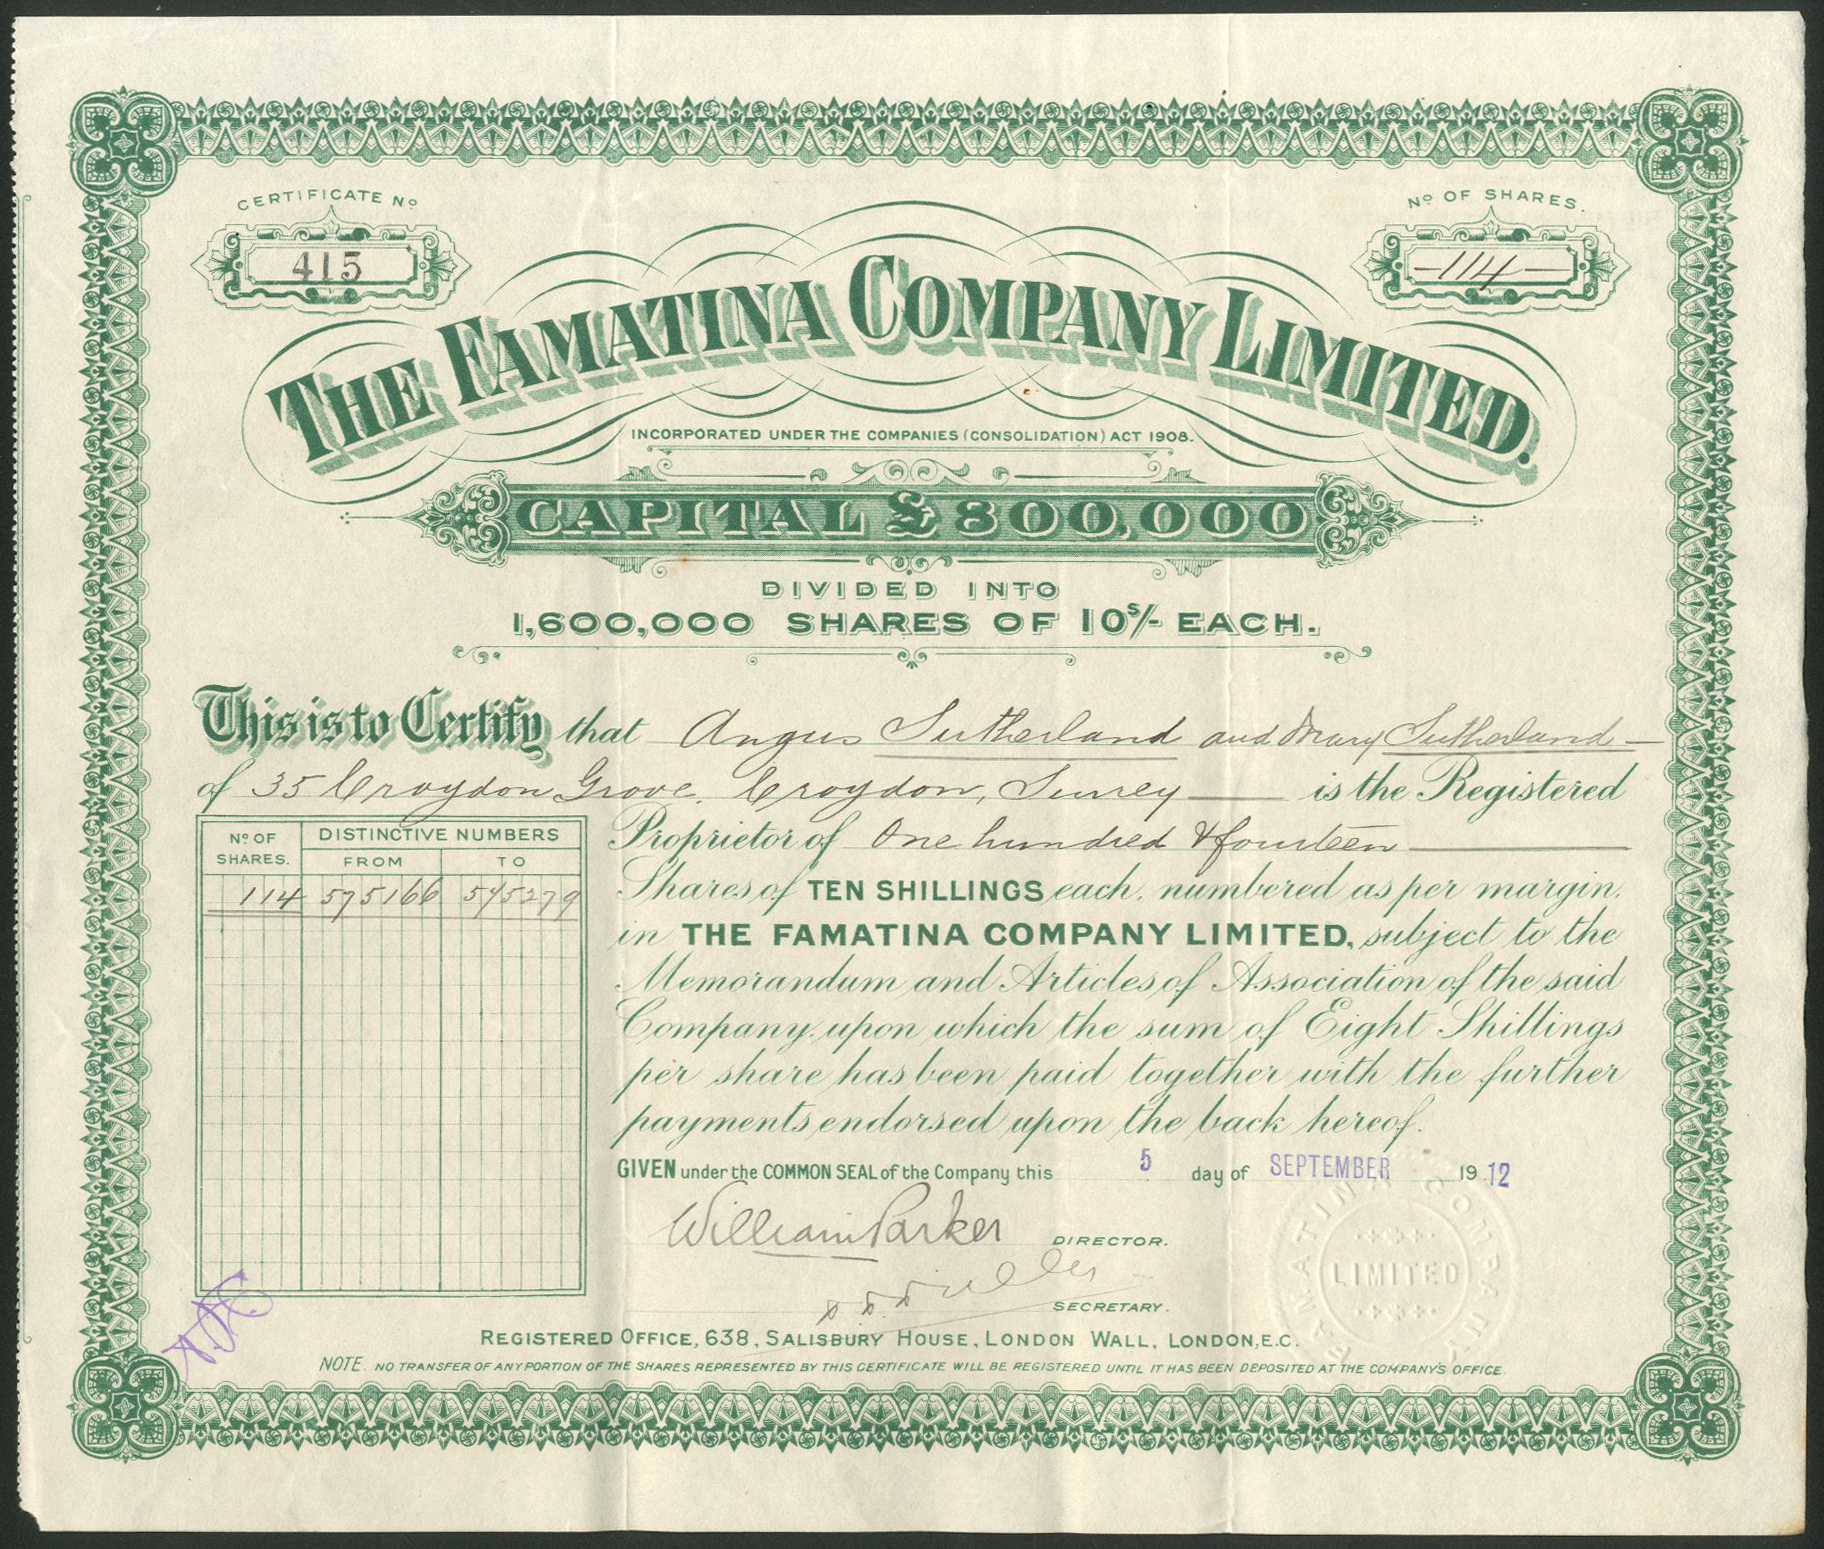 CERTIFICATE Nº
415
Nº OF SHARES.
—114—
THE FAMATINA COMPANY LIMITED.
INCORPORATED UNDER THE COMPANIES (CONSOLIDATION) ACT 1908.
CAPITAL £800,000
DIVIDED INTO
1,600,000 SHARES OF 10s/- EACH.
This is to Certify that Angus Sutherland and Mary Sutherland —
of 35 Croydon Grove, Croydon, Surrey — is the Registered
Proprietor of One hundred & fourteen —
Shares of TEN SHILLINGS each, numbered as per margin,
in THE FAMATINA COMPANY LIMITED, subject to the
Memorandum and Articles of Association of the said
Company, upon which the sum of Eight Shillings
per share has been paid together with the further
payments endorsed upon the back hereof.
Nº OF SHARES. DISTINCTIVE NUMBERS
FROM TO
114 575166 575279
GIVEN under the COMMON SEAL of the Company this 5 day of SEPTEMBER 1912
William Parker DIRECTOR.
SECRETARY.
FAMATINA COMPANY
LIMITED
REGISTERED OFFICE, 638, SALISBURY HOUSE, LONDON WALL, LONDON, E.C.
NOTE. NO TRANSFER OF ANY PORTION OF THE SHARES REPRESENTED BY THIS CERTIFICATE WILL BE REGISTERED UNTIL IT HAS BEEN DEPOSITED AT THE COMPANY'S OFFICE.